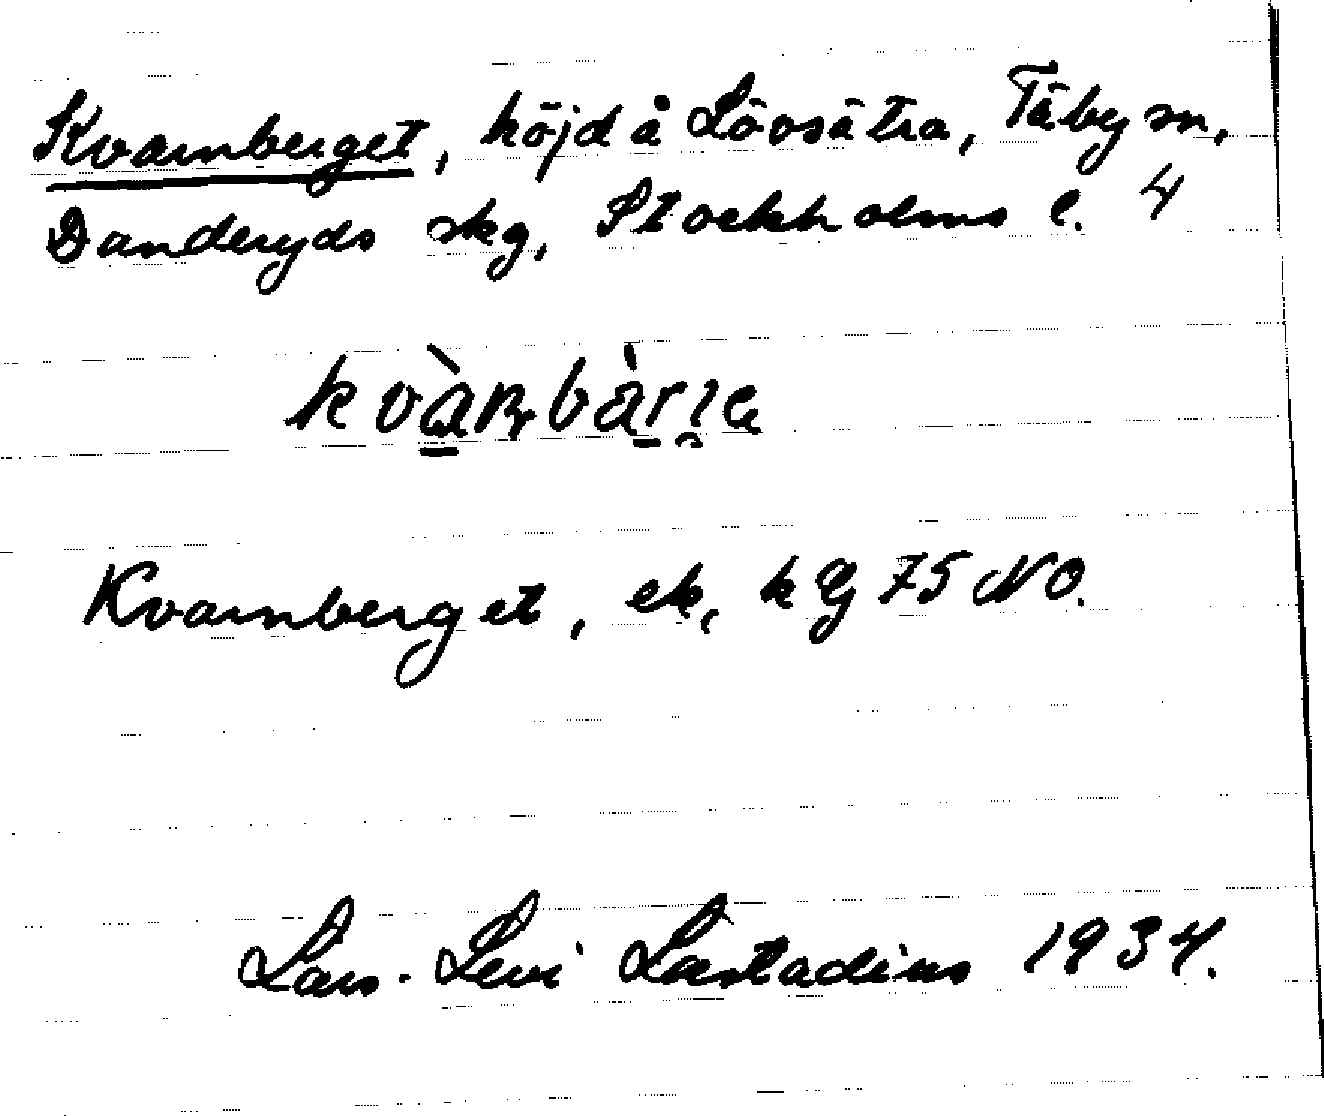 Kvarnberget, höjd å Lövsätra, Täby sn,
Danderyds skg, Stockholms l. 4
Kvarnberget, ek, kg 75 NO.
Lars-Levi Læstadius 1934.